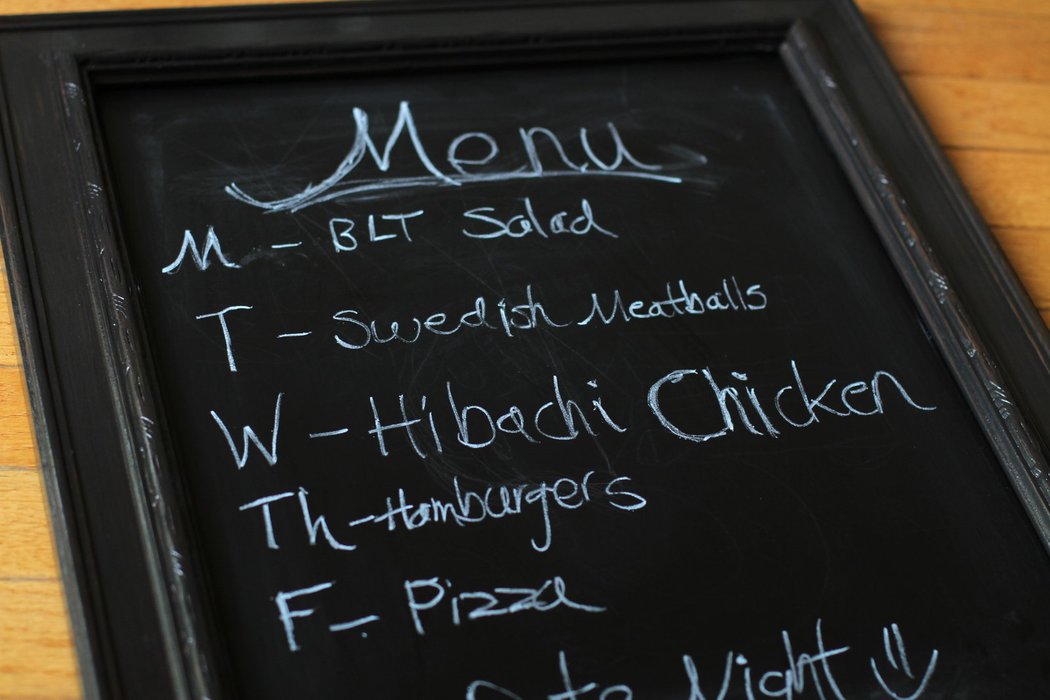 Menu
M - BLT Salad
T - Swedish Meatballs
W - Hibachi Chicken
Th - Hamburgers
F - Pizza
Date Night